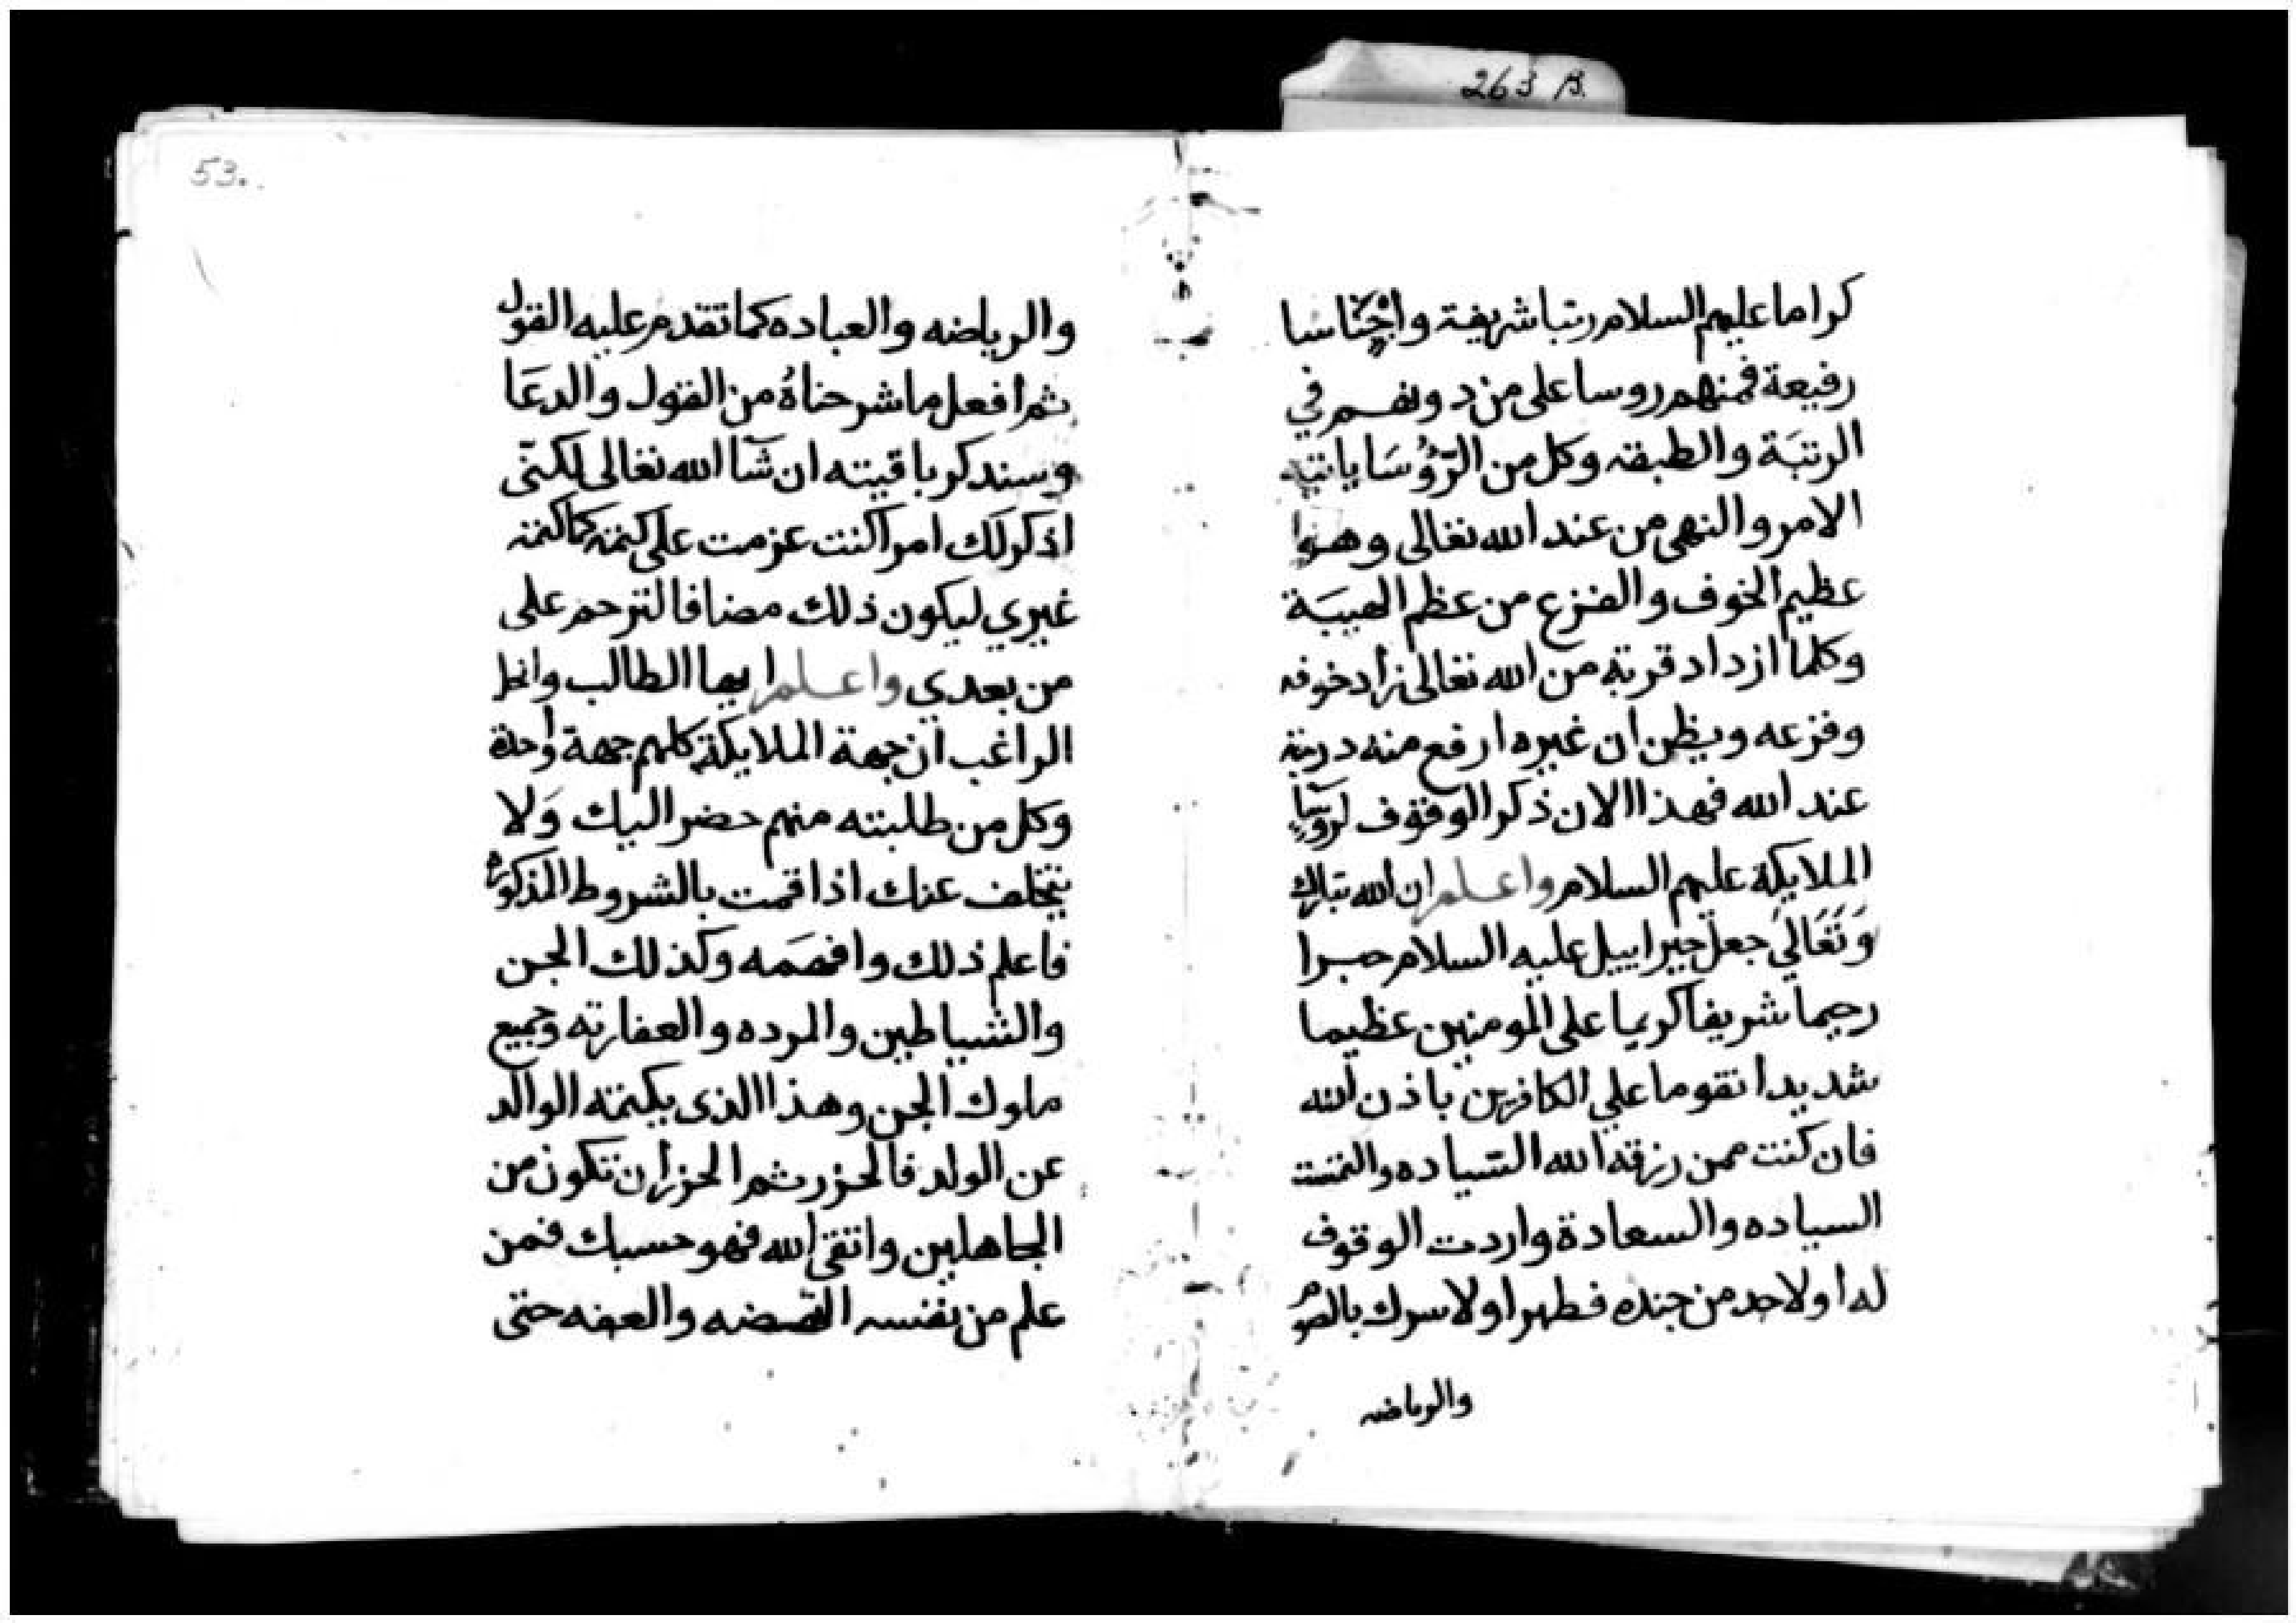 263 B.
كراما عليهم السلام رتبا شريفة واجناسا
رفيعة فمنهم روسا على من دونهم في
الرتبَة والطبقه وكل من الرّؤُسَا ياتيه
الامر والنهى من عند الله تعالى وهو
عظيم الخوف والفزع من عظم الهيبَة
وكلما ازداد قربه من الله تعالى زاد خوفه
وفزعه ويظن ان غيره ارفع منه درجة
عند الله فهذا الان ذكر الوقوف لروسا
الملايكة عليهم السلام واعلم ان الله تبارك
وَتَعَالَى جعل جبراييل عليه السلام حبرا
رحيما شريفا كريما على المومنين عظيما
شديدا نقوما علي الكافرين باذن الله
فان كنت ممن رزقه الله السياده والتمت
السياده والسعادة واردت الوقوف
له او لاحد من جنده فطهر اولا سرك بالصوم
والرياضه
53.
والرياضه والعباده كما تقدم عليه القول
ثم افعل ما شرحناهُ من القول والدعَا
وسندكر باقيته ان شَا الله تعالى لكنّى
اذكر لك امرا كنت عزمت على كتمته كما كتمته
غيري ليكون ذلك مضافا لترحم على
من بعدي واعلم ايها الطالب وانحل
الراغب ان جهة الملايكة كلهم جهة واحدة
وكل من طلبته منهم حضر اليك وَلا
يتخلف عنك اذا قمت بالشروط المذكورة
فاعلم ذلك وافهمَمه وكذلك الجن
والشياطين والمرده والعفارته وجميع
ملوك الجن وهذا الذى يكتمه الوالد
عن الولد فالحزر ثم الحزر ان تكون من
الجاهلين واتقى الله فهو حسبك فمن
علم من نفسه والعفه حتى